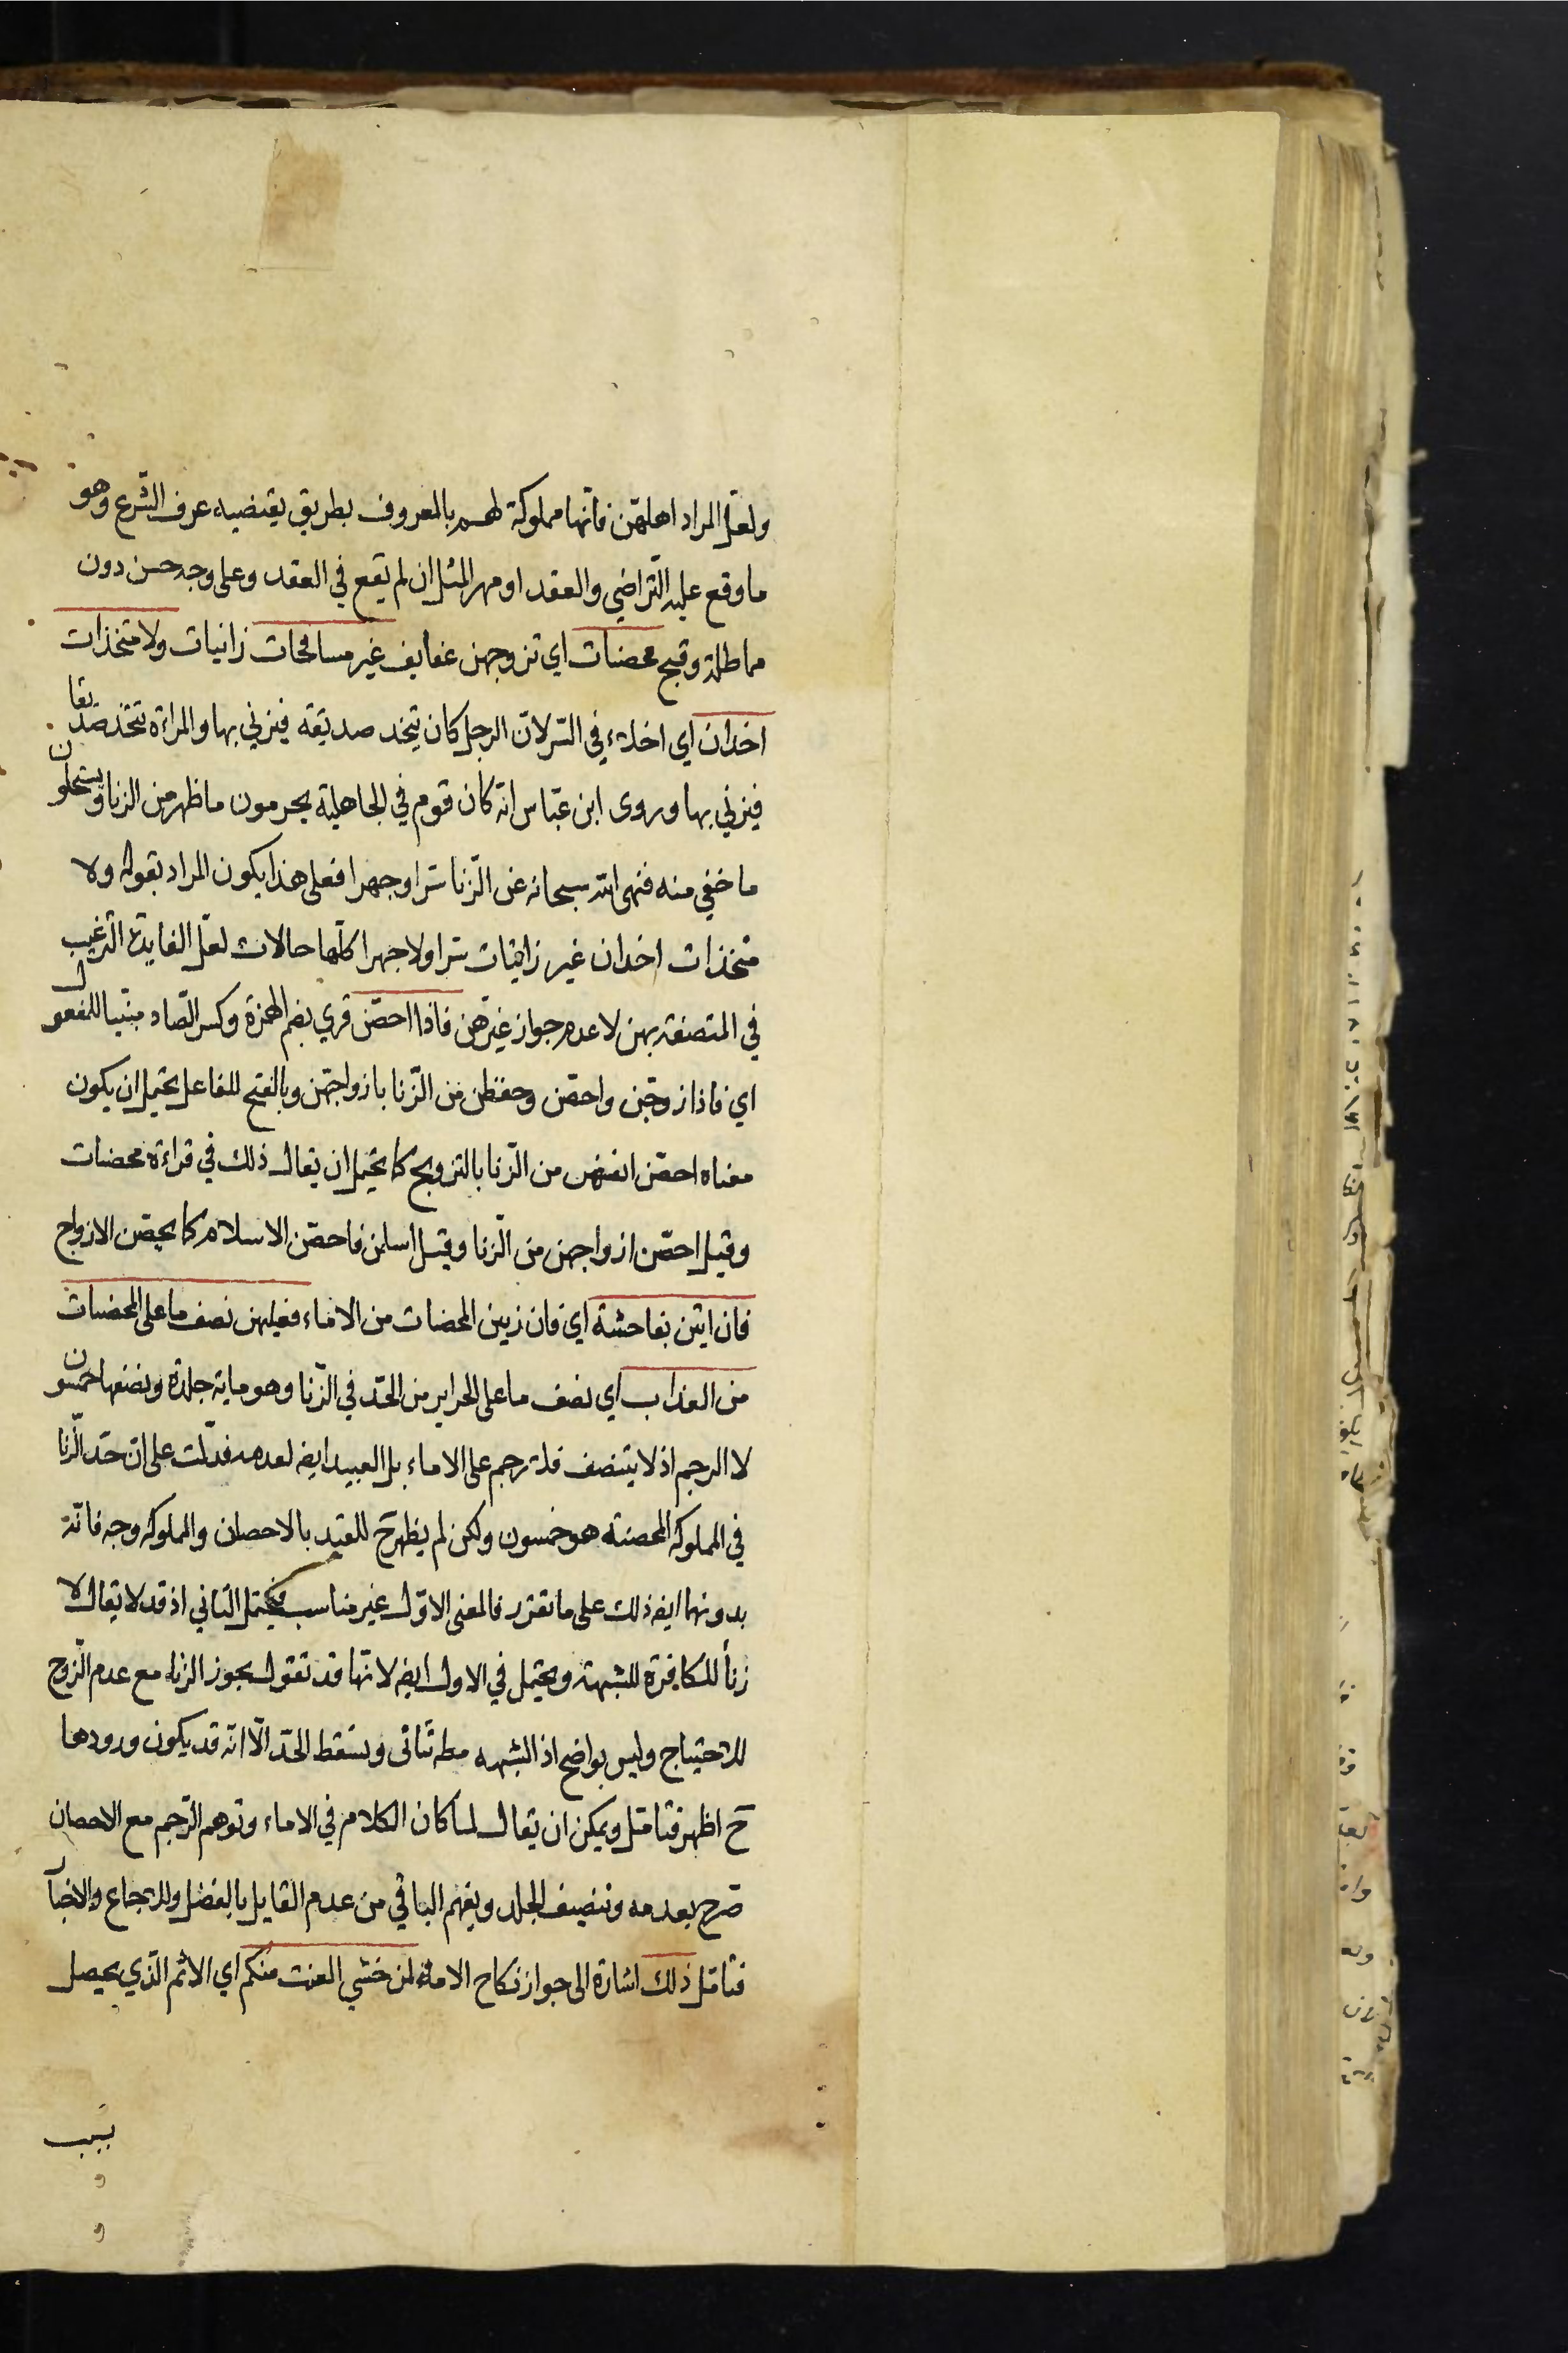 ولعلّ المراد اهلهنّ فانّها مملوكة لهم بالمعروف بطريق يقتضيه عرف الشّرع وهو
ما وقع عليه التّراضي والعقد او مهر المثل ان لم يقع في العقد وعلى وجه حسن دون
مماطلة وقبح محصنات اي تزوجهن عفايف غير مسافحات زانيات ولا متخذات
اخدان اي اخلاء في السّر لانّ الرجل كان يتخد صديقه فيزني بها والمراءة تتخذ صديقا
فيزني بها وروى ابن عبّاس انّه كان قوم في الجاهلية يحرمون ما ظهر من الزنا ويستحلون
ما خفي منه فنهى الله سبحانه عن الزّنا سّرا وجهرا فعلى هذا يكون المراد بقوله ولا
متخذات اخدان غير زانيات سّرا ولا جهرا كلّها حالات لعلّ الفايدة الترغيب
في المتصفة بهن لا عدم جواز غيرهن فاذا احصّن قري بضم الهمزة وكسر الصّاد مبنّيا للمفعول
اي فاذا زوجّن واحصّن وحفظن من الزّنا بازواجهّن وبالفتح للفاعل يحتمل ان يكون
معناه احصّن انفسهن من الزّنا بالتزويج كما يحتمل ان يقال ذلك في قراءة محصنات
وقيل احصّن ازواجهن من الزّنا وقيل اسلمن فاحصّن الاسلام كما يحصّن الازواج
فان اتين بفاحشة اي فان زنين المحصنات من الاماء فعليهن نصف ما على المحصنات
من العذاب اي نصف ما على الحراير من الحدّ في الزّنا وهو ماية جلدة ونصفها خمسون
لا الرجم اذ لا يتنصف فلا رجم على الاماء بل العبيد ايضا لعدمه فدّلت على انّ حدّ الزّنا
في المملوكه المحصنه هو خمسون ولكن لم يظهر ح للقيد بالاحصان والمملوكه وجه فانّه
بدونهما ايضا ذلك على ما تقرر فالمعنى الاوّل غير مناسب فيحتمل الثاني اذ قد لا يقال لا
زنأ للكافرة للشبهة ويحتمل في الاول ايضا لانّها قد تقول بجوز الزنا مع عدم الزّوج
للاحتياج وليس بواضح اذ الشبهه وتسقط الحدّ الّا انّه قد يكون ورودها
ح اظهر فتامّل ويمكن ان يقال لما كان الكلام في الاماء وتوهم الرّجم مع الاحصان
صّرح بعدمه وتنصيف الجلد ويفهم الباقي من عدم القايل بالفصل وللاجماع والاخبار
فتامّل ذلك اشارة الى جواز نكاح الاماء لمن خشي العنت منكم اي الاثم الّذي يحصل
بسبب